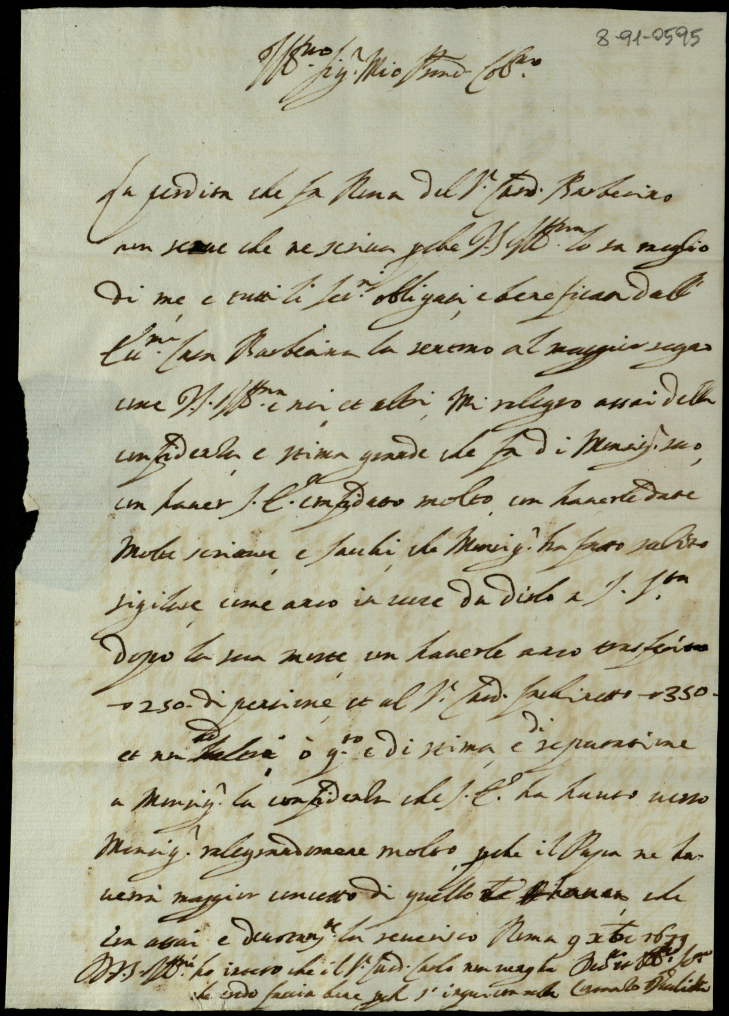 8-91-0595
Ill.mo Sig.r Mio Pron Col.mo
La perdita che fa Roma del S.r Card. Barberino
non serue che ne scriua pche V.S. Ill.ma lo sa meglio
di me, e tutti li ser.ri obligati, e beneficati dall'
Ecc.ma Casa Barberina la sentimo al maggior segno
come V.S. Ill.ma e noi, et altri, Mi ralegro assai della
confidenza, e stima grande che fa di Monsig.r suo,
con hauer S. E. confidato molto, con hauerle date
molte scritture, e sacchi, che Monsig.r ha fatto subito
sigilare, come anco in cose da dirlo a S. S.tà
doppo la sua morte, con hauerle anco trasferito
250 di pensione, et al S.r Card. Fachinetto 350
et non ò q.to e di stima, e di reputatione
a Monsig.r la confidenza che S. E. ha hauto uerso
Monsig.r ralegrandomene molto, pche il Papa ne ha-
uerà maggior concetto di quello che
era assai e deuotam.te la reuerisco Roma 9 xbre 1679
D V.S. Ill.ma ho inteso che il S.r Card. Carlo non uenghi
che credo faccia bene, pch